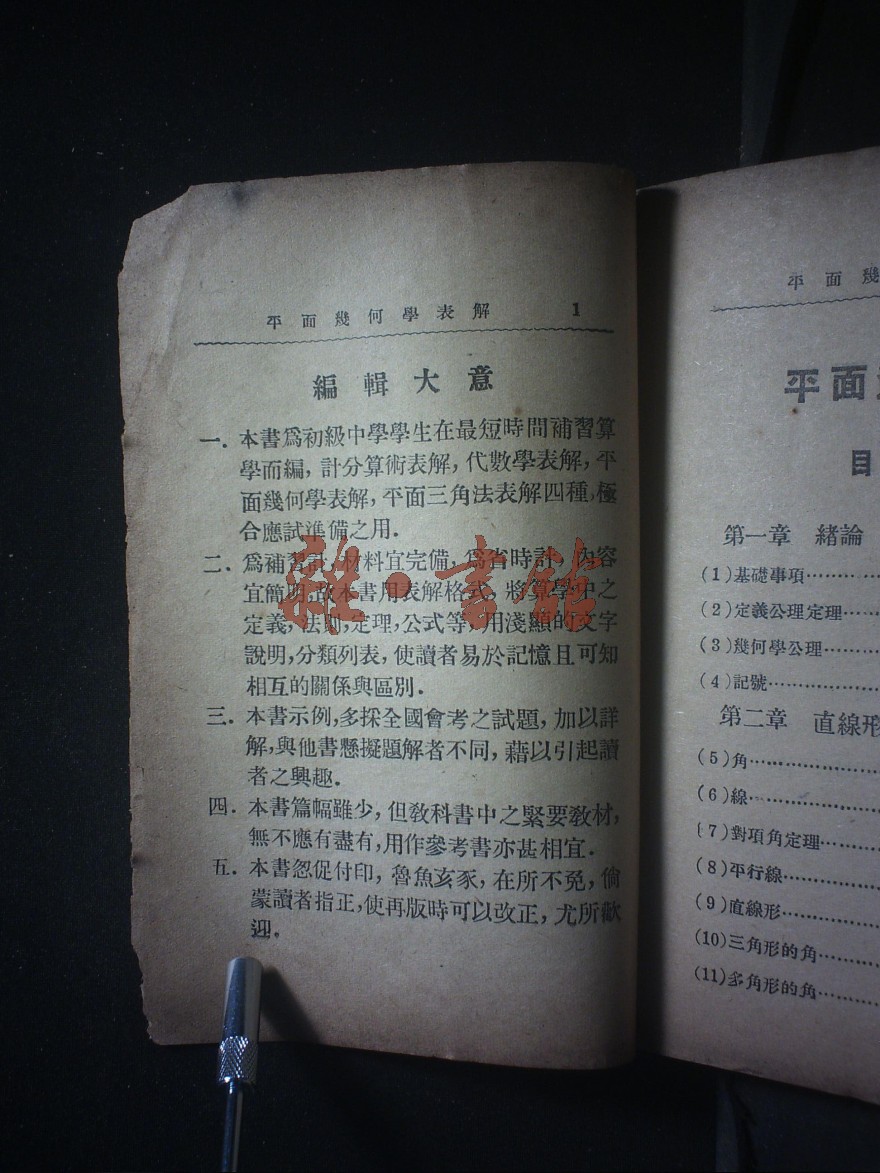 平面幾何學表解 1
編輯大意
一. 本書爲初級中學學生在最短時間補習算
學而編，計分算術表解，代數學表解，平
面幾何學表解，平面三角法表解四種，極
合應試準備之用.
二. 爲補習計，材料宜完備，爲省時計，內容
宜簡明，故本書用表解格式，將算學中之
定義，法則，定理，公式等，用淺顯的文字
說明，分類列表，使讀者易於記憶且可知
相互的關係與區別.
三. 本書示例，多採全國會考之試題，加以詳
解，與他書懸擬題解者不同，藉以引起讀
者之興趣.
四. 本書篇幅雖少，但教科書中之緊要教材，
無不應有盡有，用作參考書亦甚相宜.
五. 本書忽促付印，魯魚亥豕，在所不免，倘
蒙讀者指正，使再版時可以改正，尤所歡
迎.
雜·書館
平面幾
平面
目
第一章 緒論
(1)基礎事項……
(2)定義公理定理……
(3)幾何學公理……
(4)記號……
第二章 直線形
(5)角……
(6)線……
(7)對項角定理……
(8)平行線……
(9)直線形……
(10)三角形的角……
(11)多角形的角……